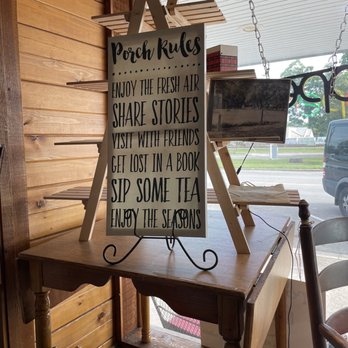 Porch Rules
ENJOY THE FRESH AIR
SHARE STORIES
VISIT WITH FRIENDS
GET LOST IN A BOOK
SIP SOME TEA
ENJOY THE SEASONS